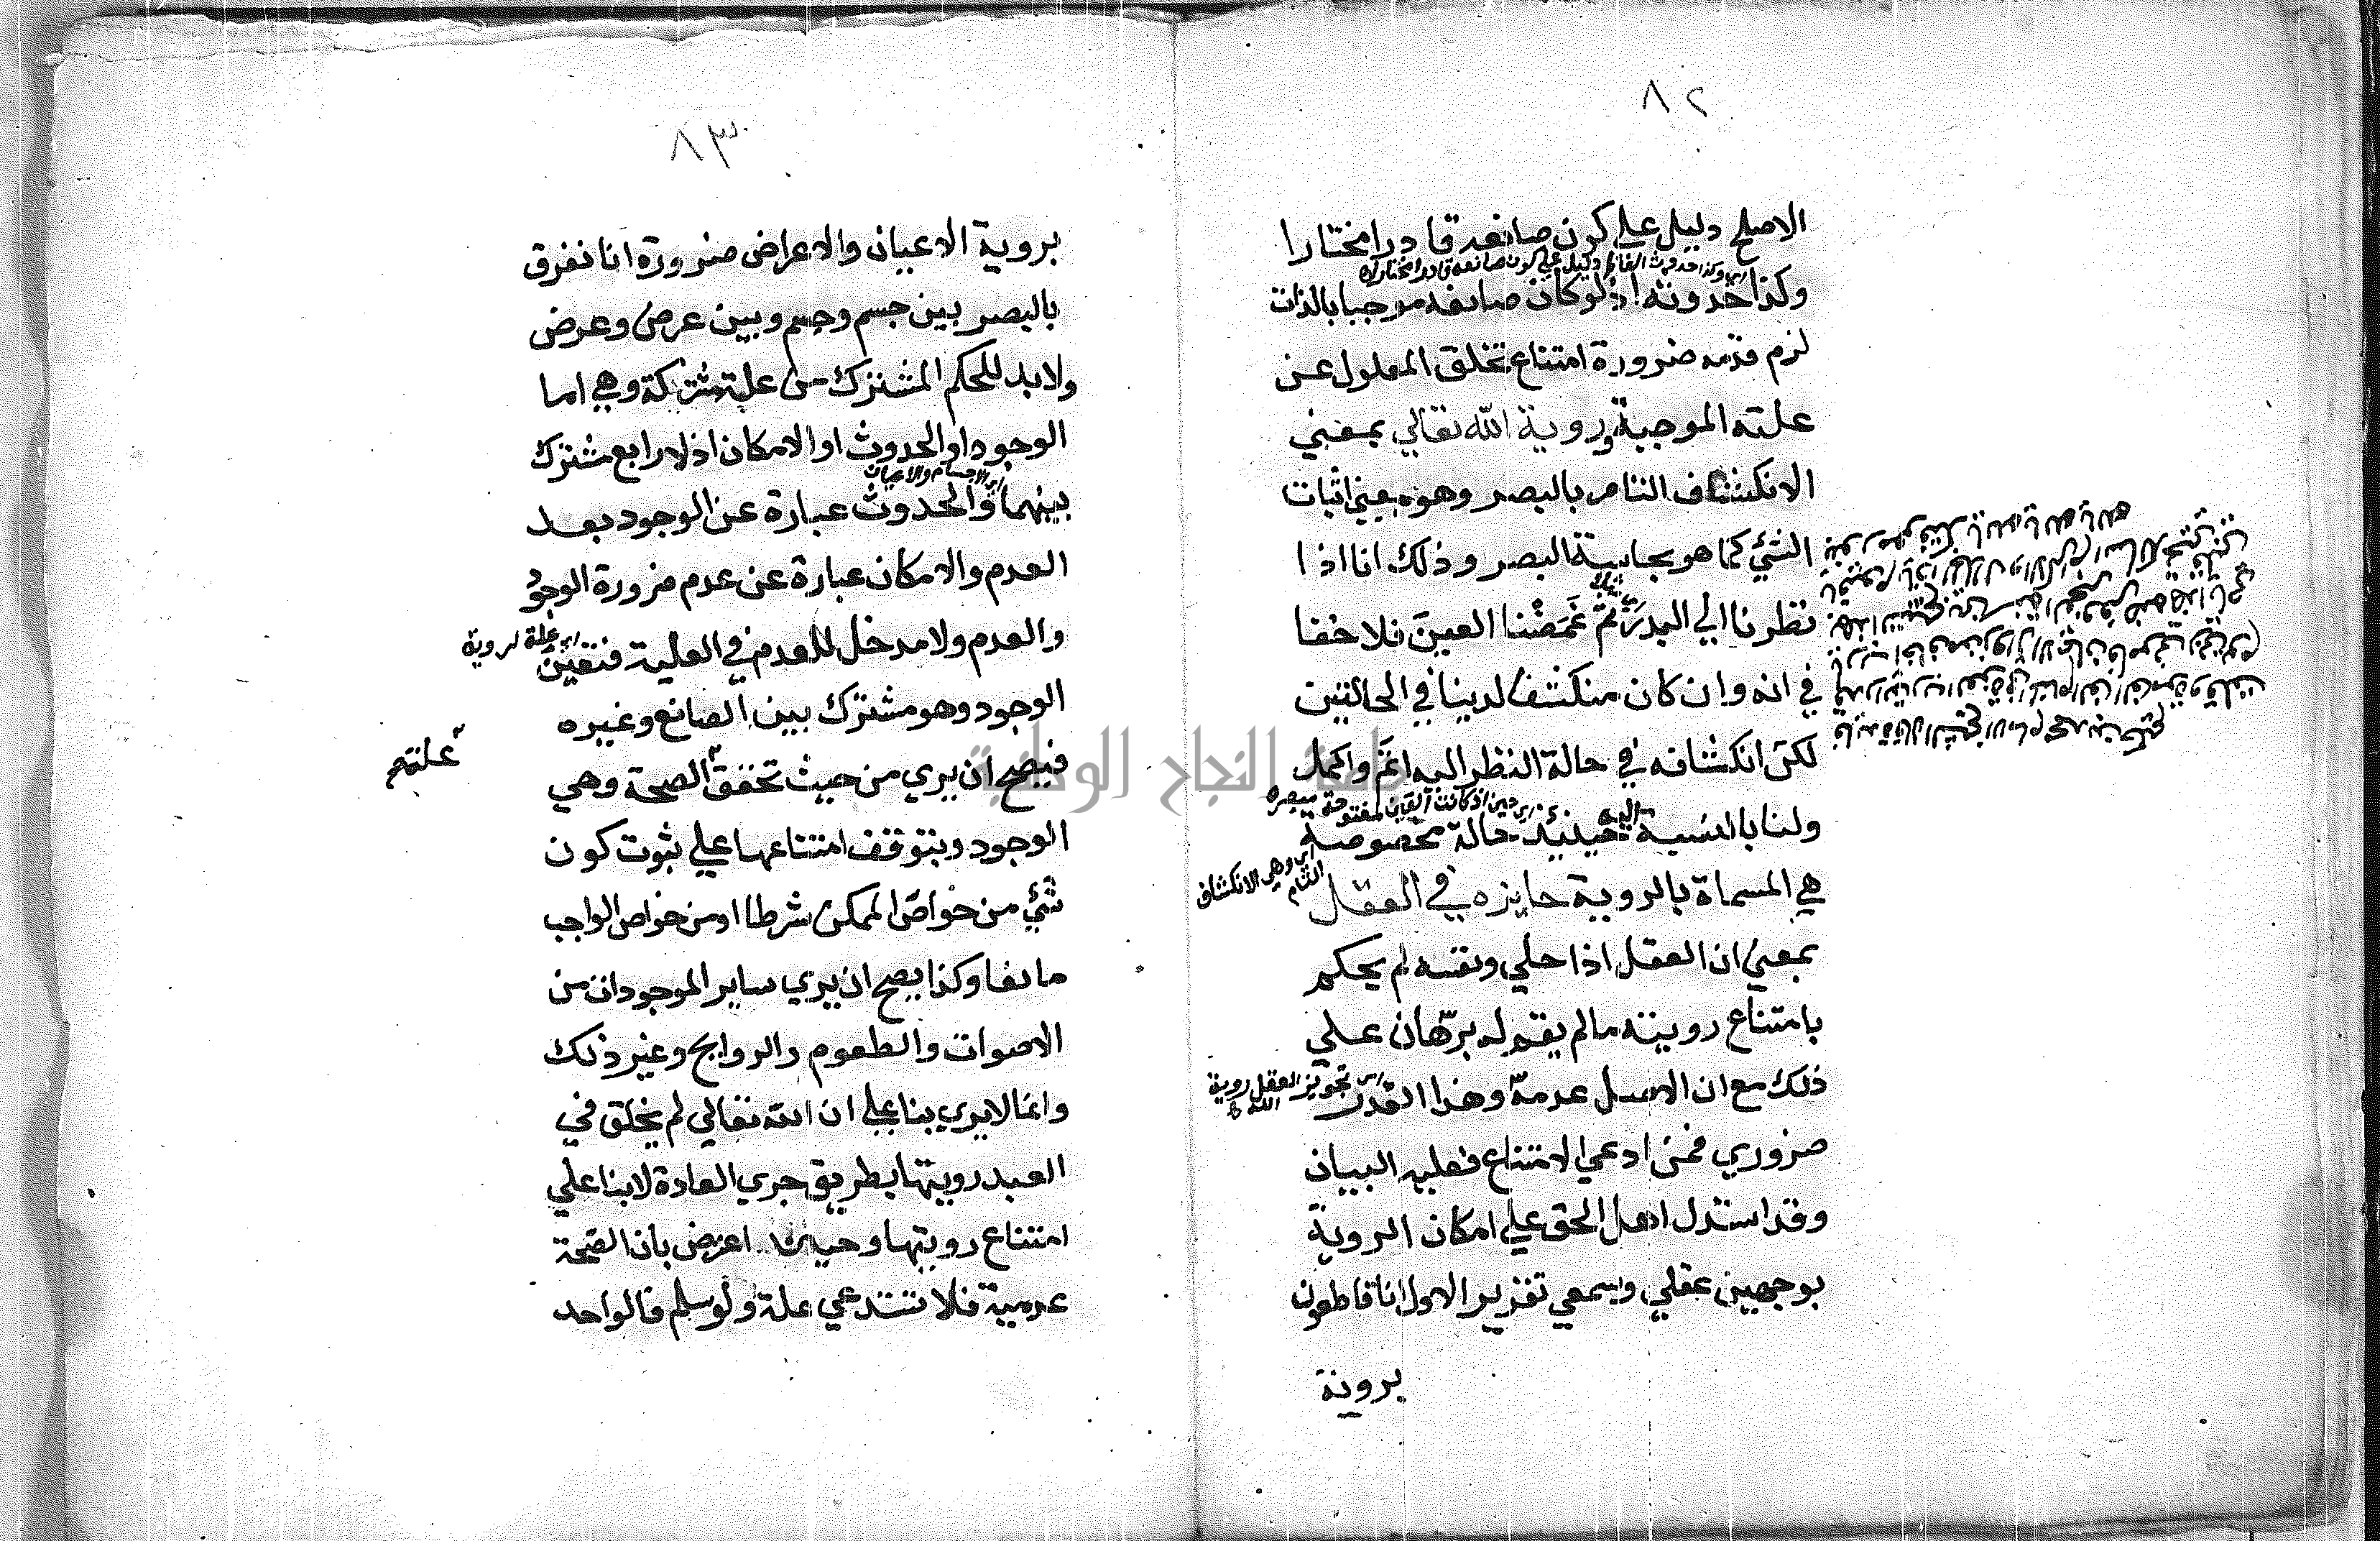 ٨٢
الاصلح دليل على كون صانعه قادرا مختارا
اي وكذا حدوث العالم دليل على كون صانعه قادرا مختارا
وكذا حدوثه اذ لو كان صانعه موجبا بالذات
لزم قدمه ضرورة امتناع تخلق المعلول عن
علته الموجبة وروية الله تعالي بمعني
الانكشاف التام بالبصر وهو معني اثبات
الشئ كما هو بحاسة البصر وذلك انا اذا
نظرنا الي البدر ثم غمضنا العين فلا خفا
في انه وان كان منكشفا لدينا في الحالتين
لكن انكشافه في حالة النظر اليه اتم واكمل
اي حين اذ كانت العين مفتوحة مبصره
ولنا بالنسبة اليه حينيذ حالة مخصوصة
اي وهي الانكشاف التام
هي المسماة بالروية جايزه في العقل
بمعني ان العقل اذا خلي ونفسه لم يحكم
بامتناع رويته مالم يقم له برهان علي
ذلك مع ان الاصل عدمه وهذا القدر
اي تجويز العقل روية الله
ضروري فمن ادعي الامتناع فعليه البيان
وقد استدل اهل الحق علي امكان الروية
بوجهين عقلي وسمعي تقرير الاول انا قاطعون
بروية
٨٣
بروية الاعيان والاعراض ضرورة انا نفرق
بالبصر بين جسم وجسم وبين عرض وعرض
ولابد للحكم المشترك من علة مشتركة وهي اما
الوجود او الحدوث او الامكان اذ لا رابع مشترك
اي الاجسام والاعيان
بينهما والحدوث عبارة عن الوجود بعد
العدم والامكان عبارة عن عدم ضرورة الوجود
والعدم ولا مدخل للعدم في العلية فتعين
اي علة لروية
الوجود وهو مشترك بين الصانع وغيره
فيصح ان يري من حيث تحقق الصحة وهي
علتهم
الوجود ويتوقف امتناعها علي ثبوت كون
شئ من خواص الممكن شرطا او من خواص الواجب
مانعا وكذا يصح ان يري ساير الموجودات من
الاصوات والطعوم والروايح وغير ذلك
وانما لا يري بنا علي ان الله تعالي لم يخلق في
العبد رويتها بطريق جري العادة لا بنا علي
امتناع رويتها وحين اعترض بان الصحة
عدمية فلا تستدعي علة ولو سلم فالواحد